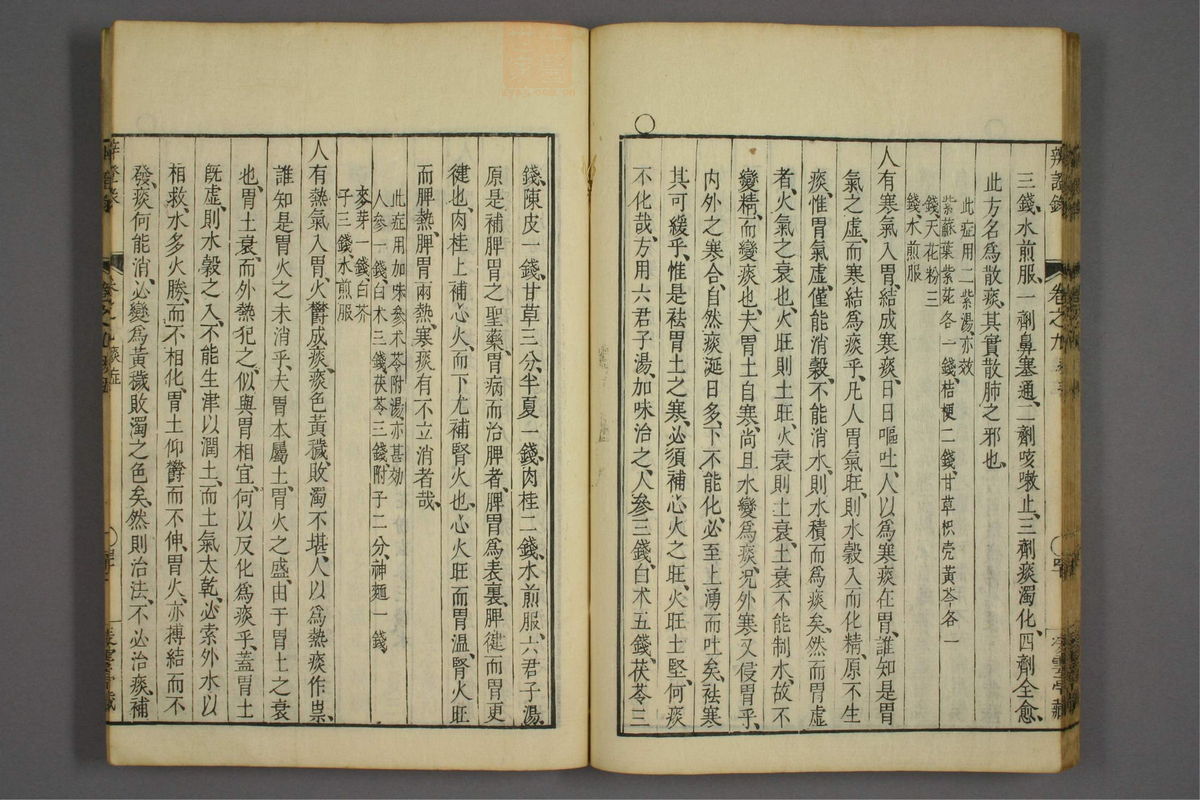 辨證錄 卷之九
三錢、水煎服、一劑鼻塞通、二劑咳嗽止、三劑痰濁化、四劑全愈、
此方名爲散痰、其實散肺之邪也、
此症用二紫湯亦效
紫蘇葉紫菀各一錢、桔梗二錢、甘草枳壳黃芩各一
錢、天花粉三
錢、水煎服
人有寒氣入胃、結成寒痰、日日嘔吐、人以爲寒痰在胃、誰知是胃
氣之虛、而寒結爲痰乎、凡人胃氣旺、則水穀入而化精、原不生
痰、惟胃氣虛、僅能消穀、不能消水、則水積而爲痰矣、然而胃虛
者、火氣之衰也、火旺則土旺、火衰則土衰、土衰不能制水、故不
變精、而變痰也、夫胃土自寒、尚且水變爲痰、况外寒又侵胃乎、
內外之寒合、自然痰涎日多、下不能化、必至上湧而吐矣、袪寒
其可緩乎、惟是袪胃土之寒、必須補心火之旺、火旺土堅、何痰
不化哉、方用六君子湯、加味治之、人參三錢、白术五錢、茯苓三
錢、陳皮一錢、甘草三分、半夏一錢、肉桂二錢、水煎服、六君子湯
原是補脾胃之聖藥、胃病而治脾者、脾胃爲表裏、脾健而胃更
健也、肉桂上補心火、而下尤補腎火也、心火旺而胃溫、腎火旺
而脾熱、脾胃兩熱、寒痰有不立消者哉、
此症用加味參术苓附湯、亦甚効
人參一錢、白术三錢、茯苓三錢、附子二分、神麯一錢
麥芽一錢、白芥
子三錢、水煎服
人有熱氣入胃、火鬱成痰、痰色黃穢、敗濁不堪、人以爲熱痰作祟、
誰知是胃火之未消乎、夫胃本屬土、胃火之盛、由于胃土之衰
也、胃土衰、而外熱犯之、似與胃相宜、何以反化爲痰乎、蓋胃土
旣虛、則水穀之入、不能生津以潤土、而土氣太乾、必索外水以
相救、水多火勝、而不相化、胃土仰鬱而不伸、胃火亦搏結而不
發、痰何能消、必變爲黃穢敗濁之色矣、然則治法、不必治痰、補